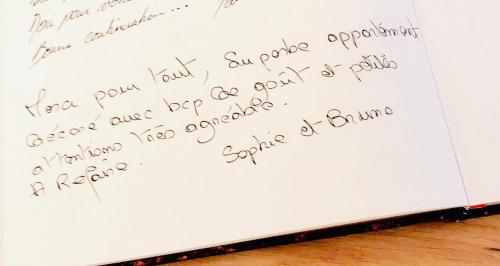 pour vous
Bonne continuation...
Merci pour tout, Superbe appartément
décoré avec bcp de goût et petites
attentions très agréable.
A Refaire.
Sophie et Bruno